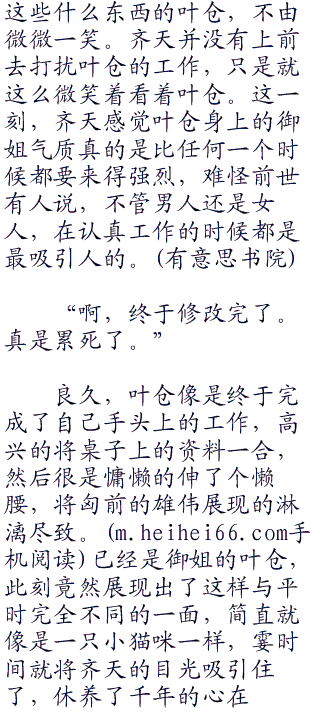 这些什么东西的叶仓，不由
微微一笑。齐天并没有上前
去打扰叶仓的工作，只是就
这么微笑着看着叶仓。这一
刻，齐天感觉叶仓身上的御
姐气质真的是比任何一个时
候都要来得强烈，难怪前世
有人说，不管男人还是女
人，在认真工作的时候都是
最吸引人的。(有意思书院)
“啊，终于修改完了。
真是累死了。”
良久，叶仓像是终于完
成了自己手头上的工作，高
兴的将桌子上的资料一合，
然后很是慵懒的伸了个懒
腰，将匈前的雄伟展现的淋
漓尽致。(m.heihei66.com手
机阅读)已经是御姐的叶仓，
此刻竟然展现出了这样与平
时完全不同的一面，简直就
像是一只小猫咪一样，霎时
间就将齐天的目光吸引住
了，休养了千年的心在